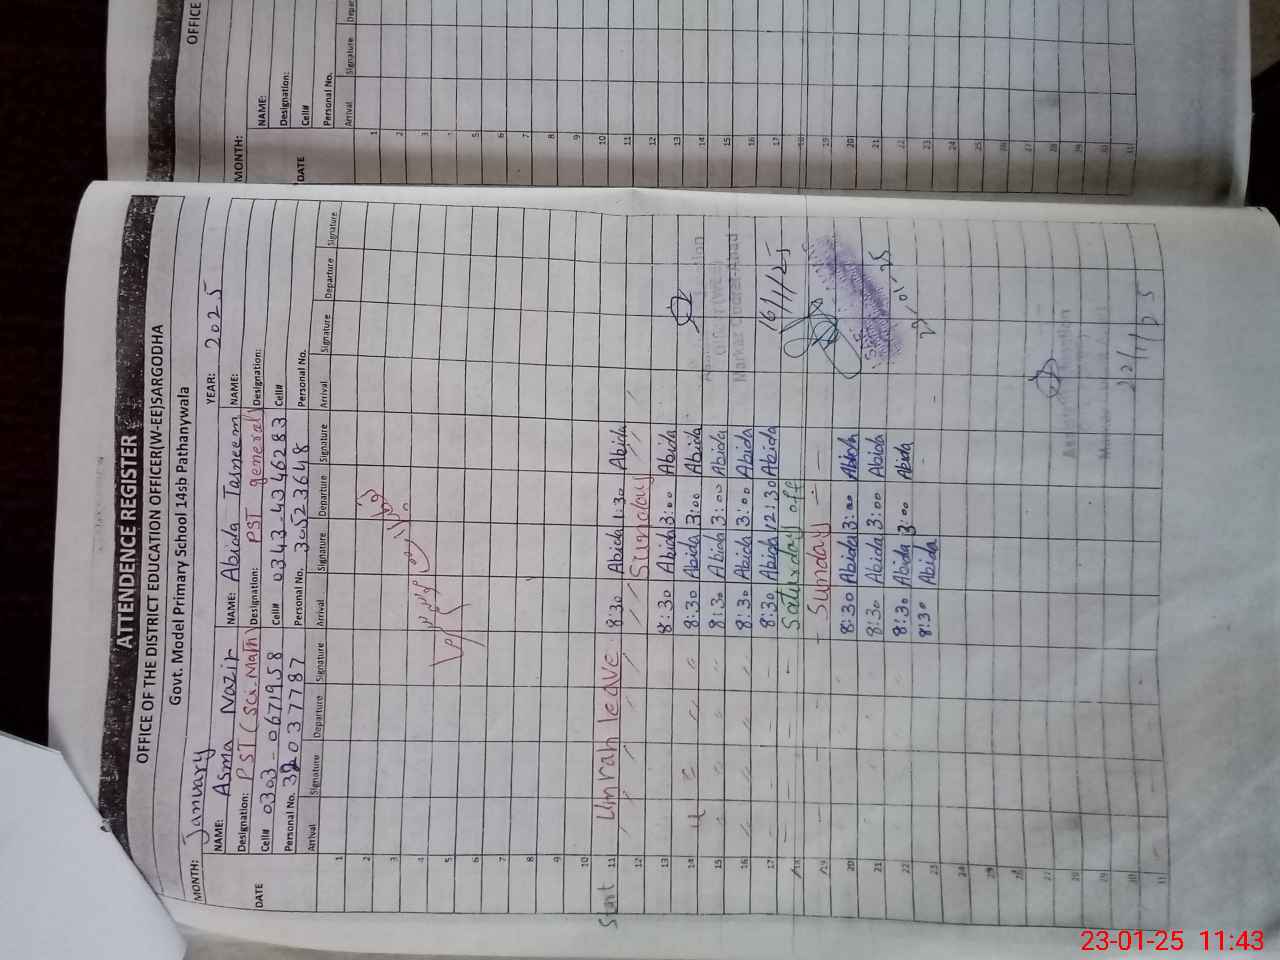 ATTENDENCE REGISTER
OFFICE OF THE DISTRICT EDUCATION OFFICER(W-EE)SARGODHA
Govt. Model Primary School 14sb Pathanywala
MONTH: January YEAR: 2025
NAME: Asma Nazir NAME: Abida Tasneem NAME:
Designation: PST (Sci-Math) Designation: PST general Designation:
Cell# 0303-0671958 Cell# 0343-4346283 Cell#
Personal No. 32037787 Personal No. 30523648 Personal No.
DATE Arrival Signature Departure Signature Arrival Signature Departure Signature Arrival Signature Departure Signature
1
2
3
4
5
6
7
8
9
10
Start 11 Umrah leave 8:30 Abida 1:30 Abida
12 Sunday
13 8:30 Abida 3:00 Abida
14 8:30 Abida 3:00 Abida
15 8:30 Abida 3:00 Abida
16 8:30 Abida 3:00 Abida
17 8:30 Abida 12:30 Abida 16/1/25
18 Saturday off
19 Sunday
20 8:30 Abida 3:00 Abida
21 8:30 Abida 3:00 Abida
22 8:30 Abida 3:00 Abida
23 8:30 Abida
24
25
26
27
28
29
30 22/1/25
31
OFFICE
MONTH:
NAME:
Designation:
Cell#
Personal No.
DATE Arrival Signature
1
2
3
4
5
6
7
8
9
10
11
12
13
14
15
16
17
18
19
20
21
22
23
24
25
26
27
28
29
30
31
23-01-25 11:43